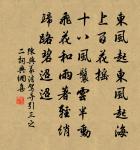 東風起東風起海
上百花搖
十八風鬟雲半動
飛花和雨著輕綃
歸路碧迢迢
陳與義法駕導引三之
二詞典網集